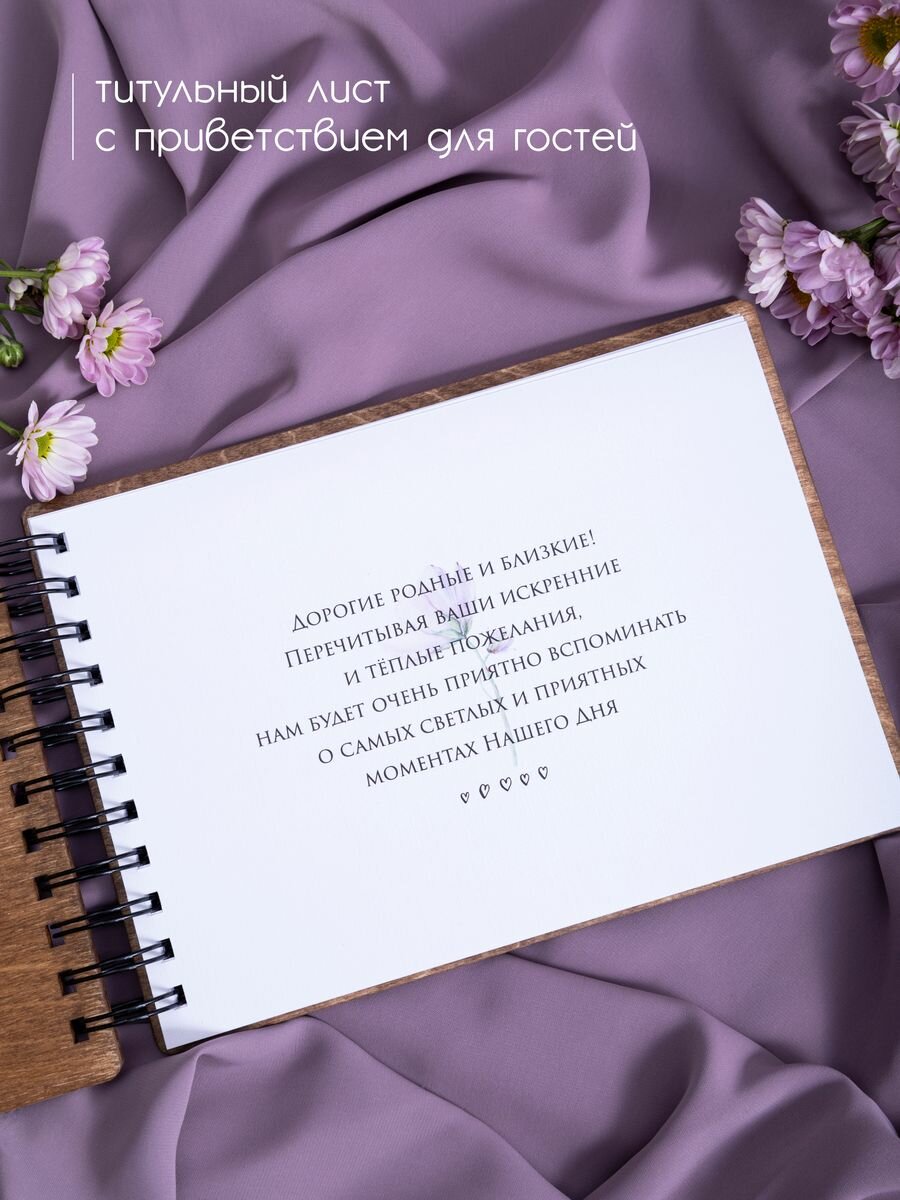 титульный лист
с приветствием для гостей
Дорогие родные и близкие!
Перечитывая ваши искренние
и тёплые пожелания,
нам будет очень приятно вспоминать
о самых светлых и приятных
моментах Нашего Дня